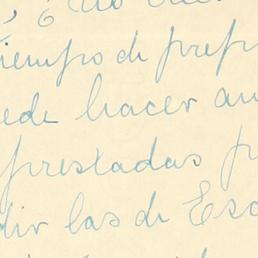 tiempo de prepr
ede hacer an
prestadas p
dir las de Esc